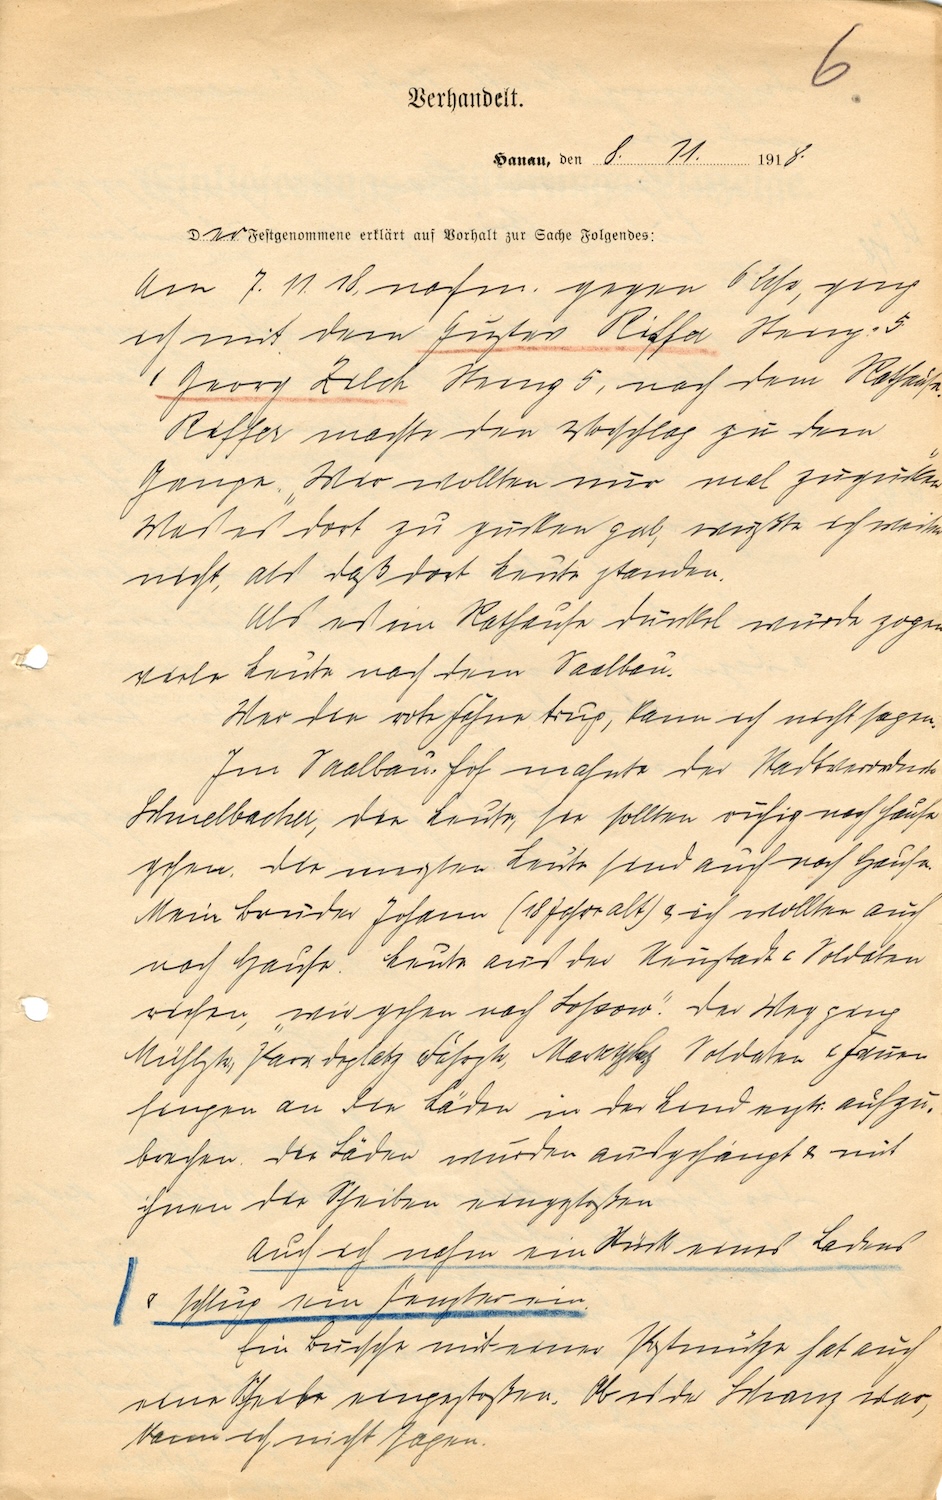 6.
Verhandelt.
Hanau, den 8. 11. 1918.
Der Festgenommene erklärt auf Vorhalt zur Sache Folgendes:
Am 7. 11. 18. nachm. gegen 6 Uhr, ging
ich mit dem Gustav Riffer 5
& Georg Zilch 5, nach dem Rathause.
Riffer machte den Vorschlag zu dem
Gange. „Wir wollten nur mal zugucken"
Was es dort zu gucken gab, wußte ich weiter
nicht, als daß dort Leute standen.
Als es im Rathause dunkel wurde zogen
viele Leute nach dem Saalbau.
Wer die rote Fahne trug, kann ich nicht sagen.
Im Saalbau-Hof mahnte der Stadtverordnete
Schnellbacher, die Leute, sie sollten ruhig nach Hause
gehen. Die meisten Leute sind auch nach Hause.
Mein Bruder Johann (18 Jahre alt) & ich wollten auch
nach Hause. Leute aus der Neustadt & Soldaten
riefen, „wir gehen nach Lossow". Der Weg ging
Mühlstr, Paradeplatz Fahrstr, Marktplatz Soldaten & Frauen
fingen an die Läden in der aufzu-
brechen. Die Läden wurden ausgehängt & mit
ihnen die Scheiben eingestoßen
Auch ich nahm ein Stück eines Ladens
& schlug ein Fenster ein.
Ein Bursche mit einer Postmütze hat auch
eine Scheibe eingestoßen. Ob es der Schranz war,
kann ich nicht sagen.